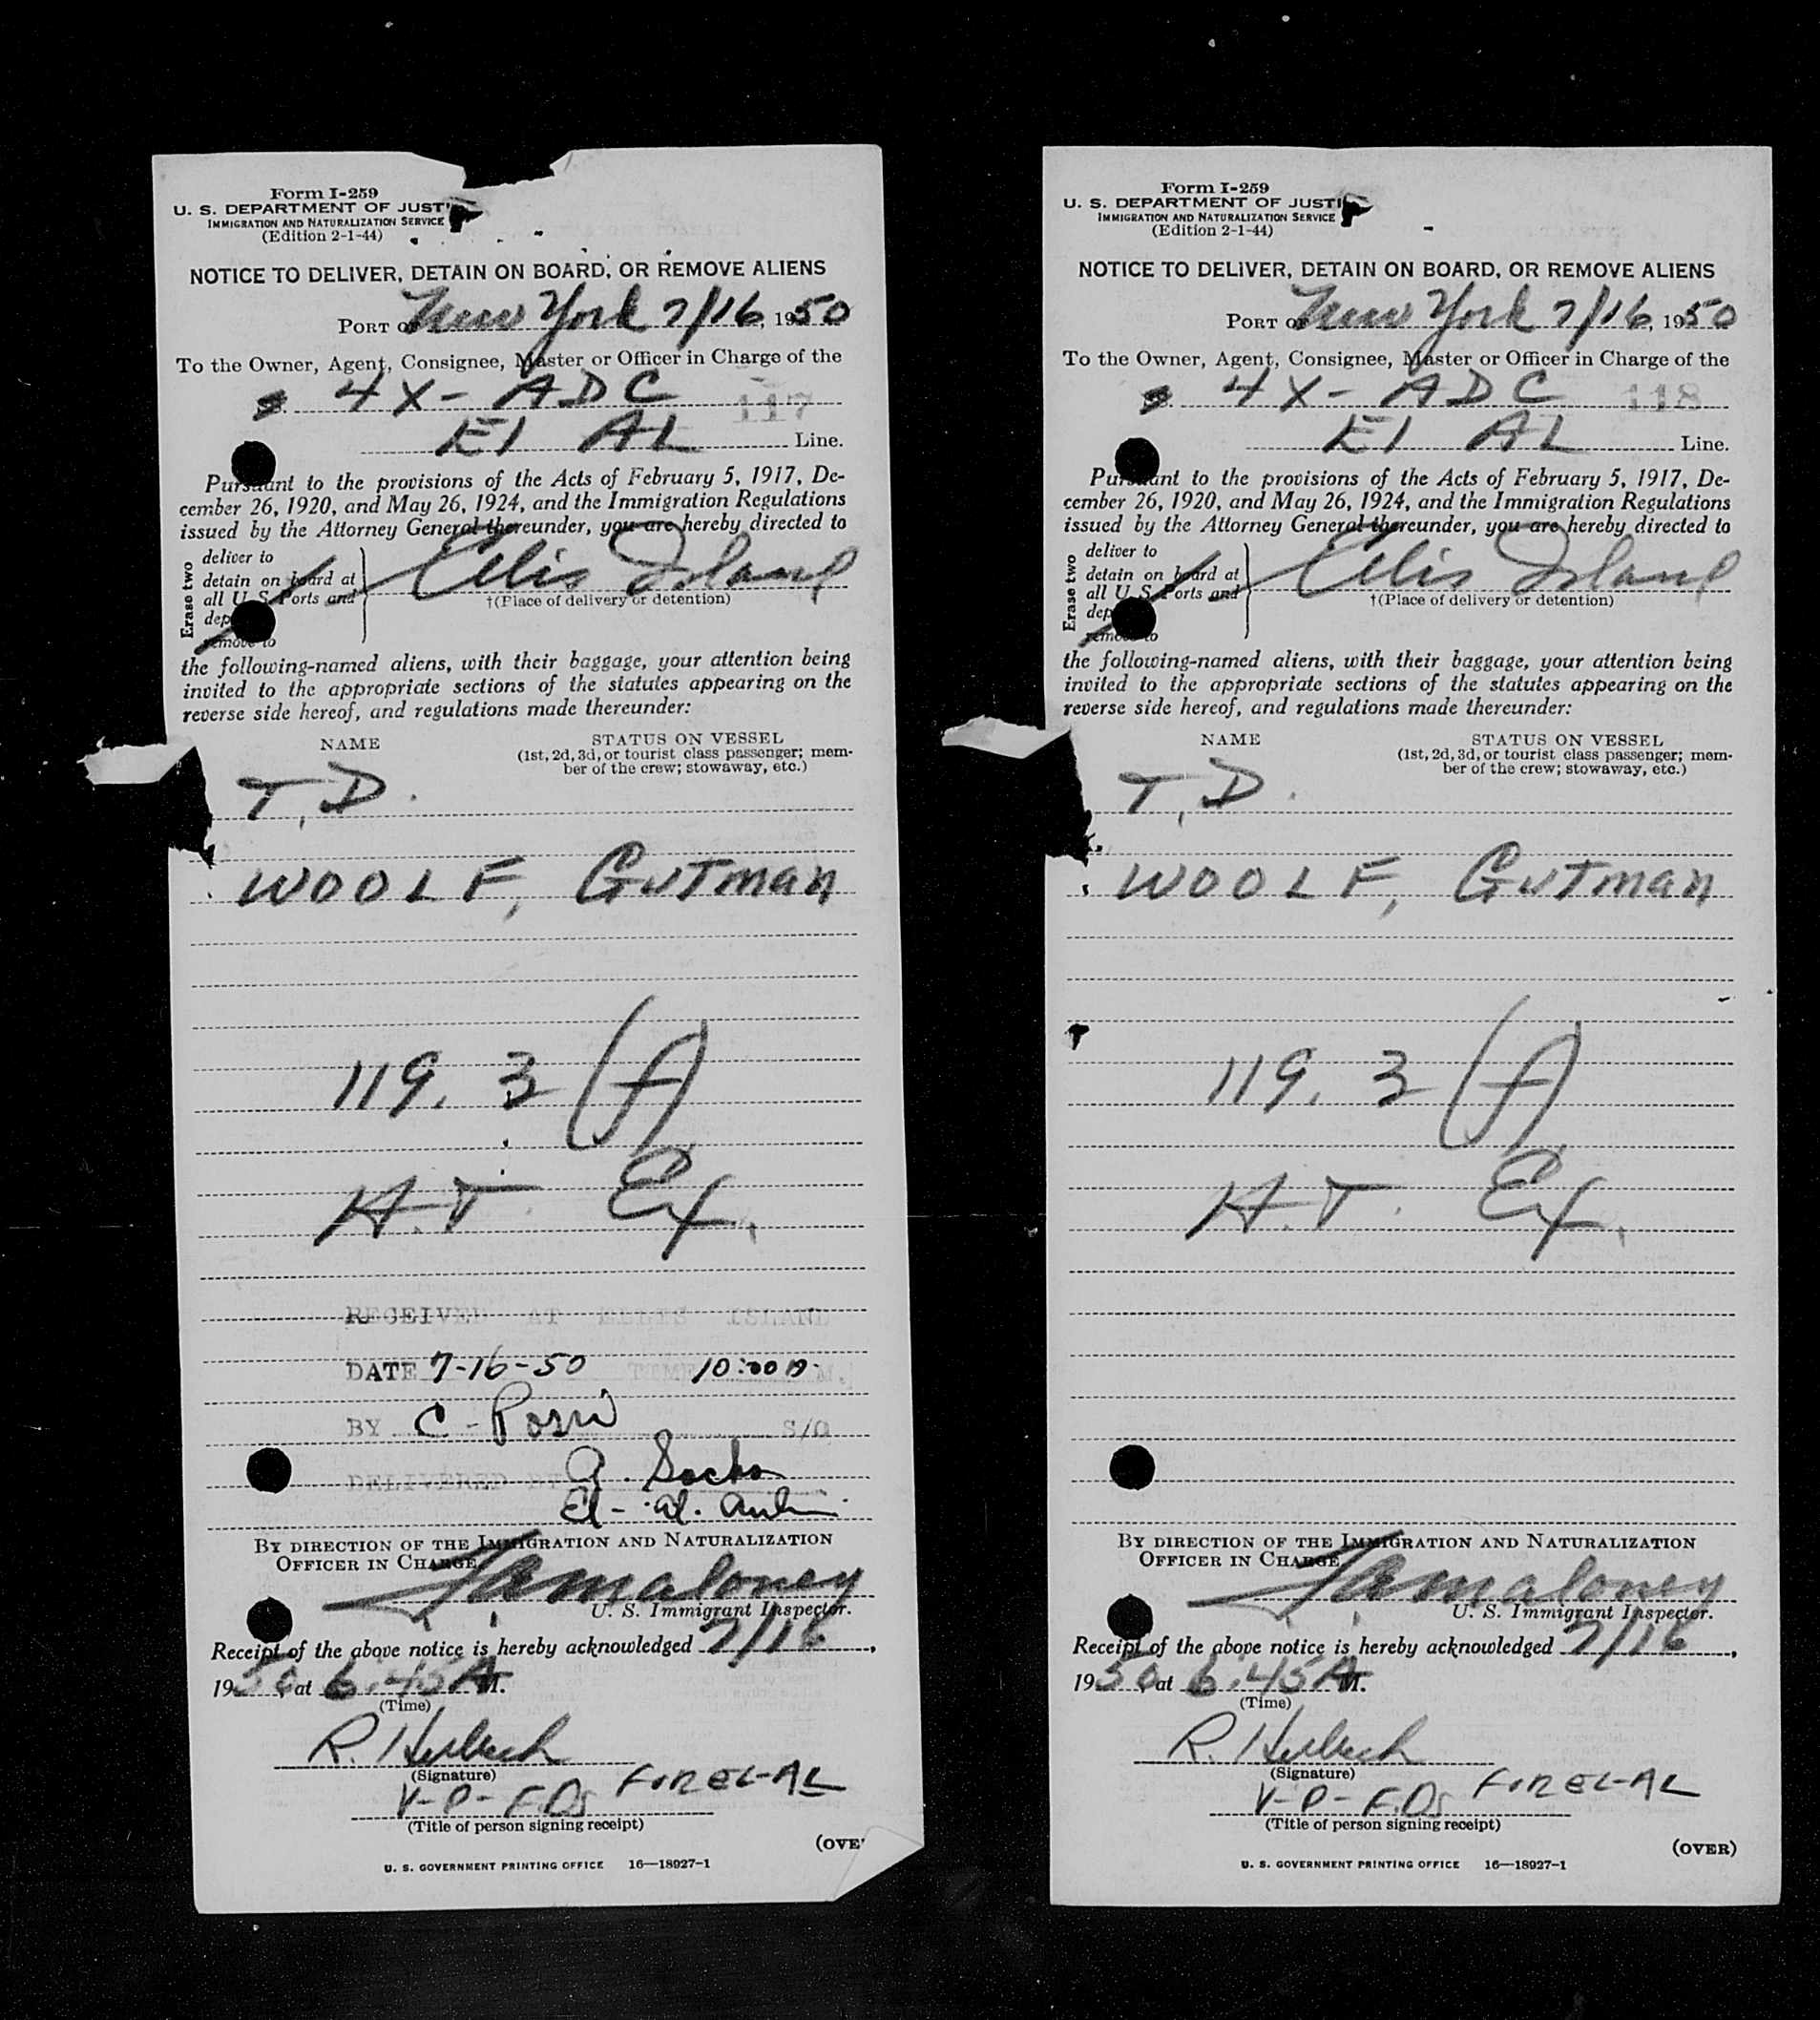 Form I-259
U. S. DEPARTMENT OF JUST
IMMIGRATION AND NATURALIZATION SERVICE
(Edition 2-1-44)
NOTICE TO DELIVER, DETAIN ON BOARD, OR REMOVE ALIENS
PORT OF New York 7/16, 1950
To the Owner, Agent, Consignee, Master or Officer in Charge of the
4X-ADC 117
El AL Line.
Pursuant to the provisions of the Acts of February 5, 1917, De-
cember 26, 1920, and May 26, 1924, and the Immigration Regulations
issued by the Attorney General thereunder, you are hereby directed to
Erase two
deliver to
detain on board at
all U. S. Ports and
dep
remove to
Ellis Island
†(Place of delivery or detention)
the following-named aliens, with their baggage, your attention being
invited to the appropriate sections of the statutes appearing on the
reverse side hereof, and regulations made thereunder:
NAME
STATUS ON VESSEL
(1st, 2d, 3d, or tourist class passenger; mem-
ber of the crew; stowaway, etc.)
T.D.
WOOLF, GUTman
119.3 (f)
H.T. Ex.
RECEIVED AT ELLIS ISLAND
DATE 7-16-50 TIME 10:00 M.
BY C. S/O
DELIVERED BY A. Sachs
El-Al.
BY DIRECTION OF THE IMMIGRATION AND NATURALIZATION
OFFICER IN CHARGE
Maloney
U. S. Immigrant Inspector.
Receipt of the above notice is hereby acknowledged 7/16,
1950, at 6:45 A M.
(Time)
R.
(Signature)
V-P- FOR EL-AL
(Title of person signing receipt)
(OVE
U. S. GOVERNMENT PRINTING OFFICE 16—18927-1
Form I-259
U. S. DEPARTMENT OF JUSTI
IMMIGRATION AND NATURALIZATION SERVICE
(Edition 2-1-44)
NOTICE TO DELIVER, DETAIN ON BOARD, OR REMOVE ALIENS
PORT OF New York 7/16, 1950
To the Owner, Agent, Consignee, Master or Officer in Charge of the
4X-ADC 118
El AL Line.
Pursuant to the provisions of the Acts of February 5, 1917, De-
cember 26, 1920, and May 26, 1924, and the Immigration Regulations
issued by the Attorney General thereunder, you are hereby directed to
Erase two
deliver to
detain on board at
all U. S. Ports and
dep
remove to
Ellis Island
†(Place of delivery or detention)
the following-named aliens, with their baggage, your attention being
invited to the appropriate sections of the statutes appearing on the
reverse side hereof, and regulations made thereunder:
NAME
STATUS ON VESSEL
(1st, 2d, 3d, or tourist class passenger; mem-
ber of the crew; stowaway, etc.)
T.D.
WOOLF, GUTman
119.3 (f)
H.T. Ex.
BY DIRECTION OF THE IMMIGRATION AND NATURALIZATION
OFFICER IN CHARGE
Maloney
U. S. Immigrant Inspector.
Receipt of the above notice is hereby acknowledged 7/16,
1950, at 6:45 A M.
(Time)
R.
(Signature)
V-P- FOR EL-AL
(Title of person signing receipt)
(OVER)
U. S. GOVERNMENT PRINTING OFFICE 16—18927-1